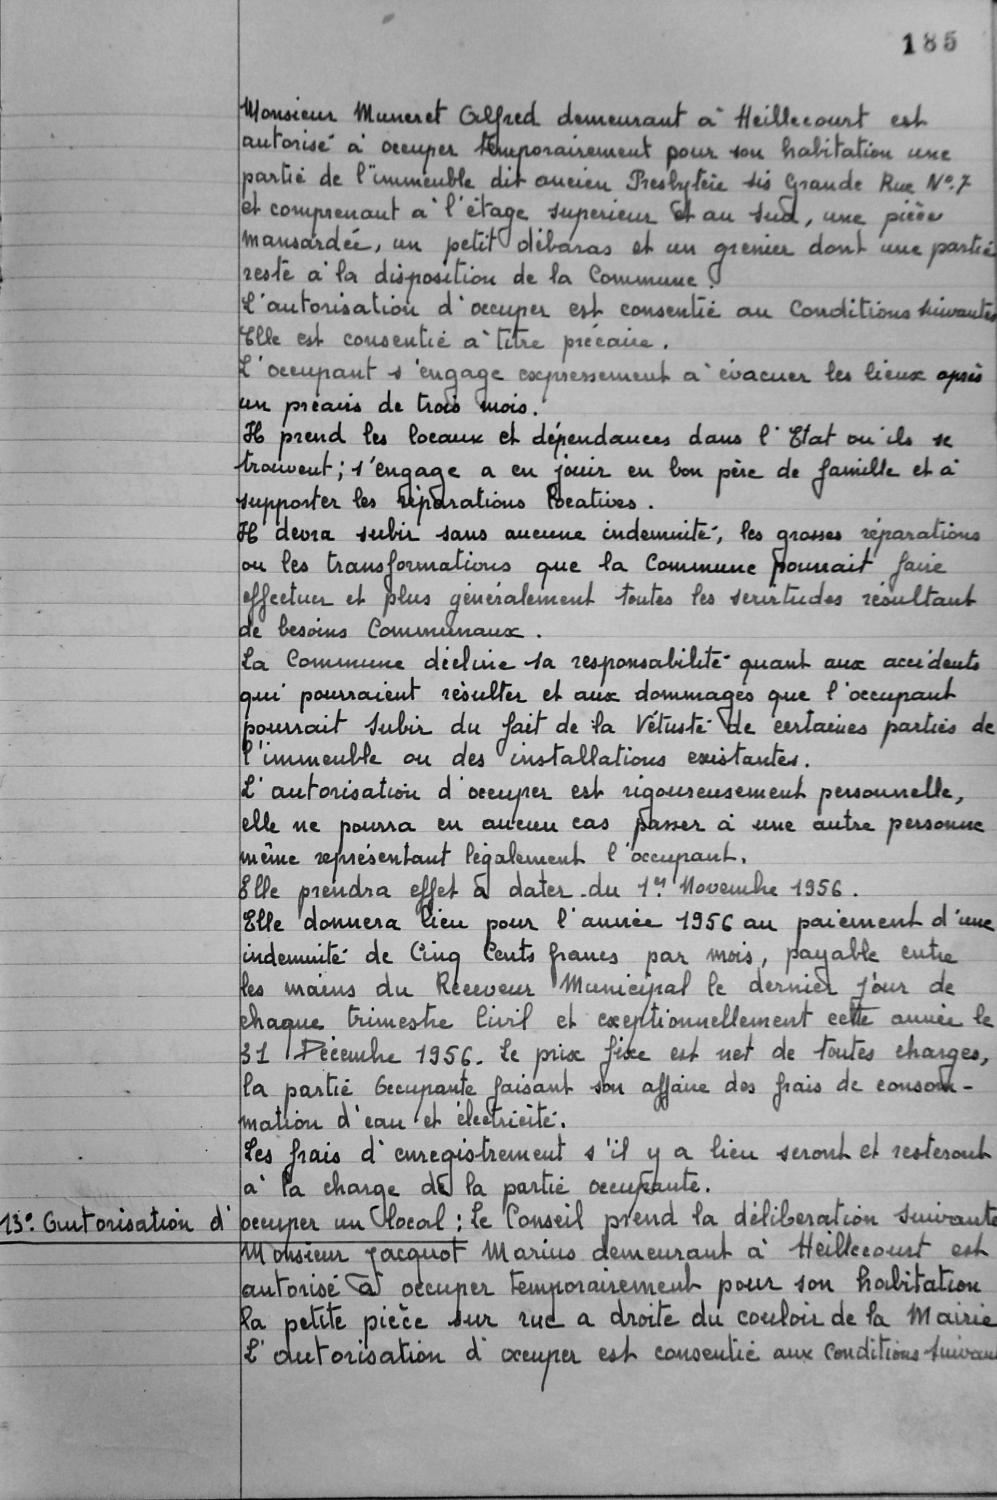 185
Monsieur Muneret Alfred demeurant à Heillecourt est
autorisé à occuper temporairement pour son habitation une
partie de l'immeuble dit ancien Presbytère sis Grande Rue N°.7
et comprenant à l'étage supérieur et au sud, une pièce
mansardée, un petit débaras et un grenier dont une partie
reste à la disposition de la Commune.
L'autorisation d'occuper est consentie au Conditions suivantes
Elle est consentie à titre précaire.
L'occupant s'engage expressement à évacuer les lieux après
un préavis de trois mois.
Il prend les locaux et dépendances dans l'Etat où ils se
trouvent; s'engage a en jouir en bon père de famille et à
supporter les réparations locatives.
Il devra subir sans aucune indemnité, les grosses réparations
ou les transformations que la Commune pourrait faire
effectuer et plus généralement toutes les servitudes résultant
de besoins Communaux.
La Commune décline sa responsabilité quant aux accidents
qui pourraient résulter et aux dommages que l'occupant
pourrait subir du fait de la Vétusté de certaines parties de
l'immeuble ou des installations existantes.
L'autorisation d'occuper est rigoureusement personnelle,
elle ne pourra en aucun cas passer à une autre personne
même représentant légalement l'occupant.
Elle prendra effet à dater du 1er Novembre 1956.
Elle donnera lieu pour l'année 1956 au paiement d'une
indemnité de Cinq Cents francs par mois, payable entre
les mains du Receveur Municipal le dernier jour de
chaque trimestre Civil et exceptionnellement cette année le
31 Décembre 1956. Le prix fixe est net de toutes charges,
la partie Occupante faisant son affaire des frais de consom-
mation d'eau et électricité.
Les frais d'enregistrement s'il y a lieu seront et resteront
à la charge de la partie occupante.
13°. Autorisation d'occuper un local : Le Conseil prend la délibération suivante
Monsieur Jacquot Marius demeurant à Heillecourt est
autorisé à occuper temporairement pour son habitation
la petite pièce sur rue a droite du couloir de la Mairie
L'autorisation d'occuper est consentie aux Conditions suivan